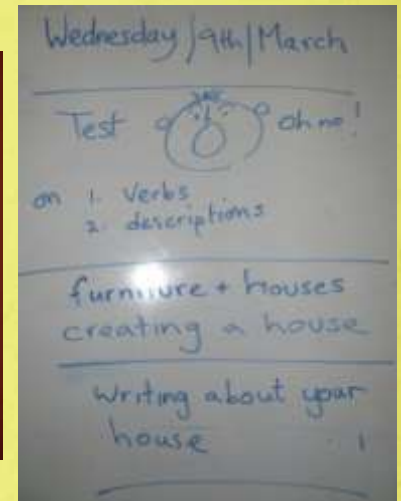 Wednesday | 9th | March
Test oh no!
on 1. Verbs
2. descriptions
furniture + houses
creating a house
writing about your
house